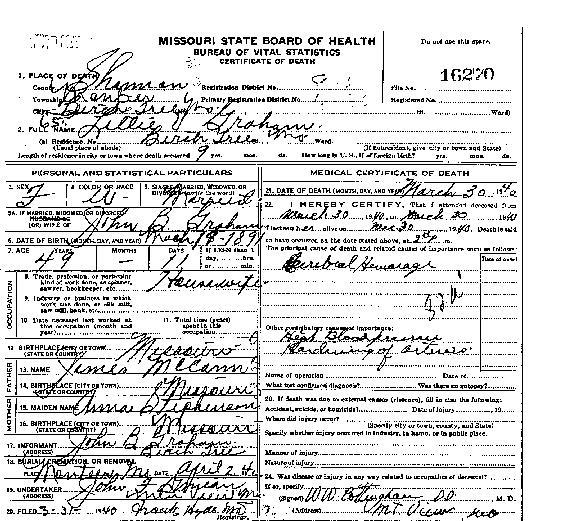 MISSOURI STATE BOARD OF HEALTH
BUREAU OF VITAL STATISTICS
CERTIFICATE OF DEATH
Do not use this space.
1. PLACE OF DEATH
County Shannon Registration District No. File No. 16220
Township Primary Registration District No. Registered No.
City Birch Tree Ward)
2. FULL NAME Lillie Graham
(a) Residence. No. Birch Tree Mo Ward.
(Usual place of abode) (If nonresident, give city or town and State)
Length of residence in city or town where death occurred 9 yrs. mos. ds. How long in U. S., if of foreign birth? yrs. mos. ds.
PERSONAL AND STATISTICAL PARTICULARS
3. SEX F 4. COLOR OR RACE W 5. SINGLE, MARRIED, WIDOWED, OR DIVORCED Married
5A. IF MARRIED, WIDOWED, OR DIVORCED
HUSBAND OF
(OR) WIFE OF John B Graham
6. DATE OF BIRTH (MONTH, DAY, AND YEAR) March 19-1891
7. AGE 49 MONTHS 11
8. Trade, profession, or particular kind of work done, as spinner, sawyer, bookkeeper, etc. Housewife
9. Industry or business in which work was done, as silk mill, saw mill, bank, etc.
10. Date deceased last worked at this occupation (month and year)
11. Total time (years) spent in this occupation
12. BIRTHPLACE (CITY OR TOWN) Missouri
(STATE OR COUNTRY)
13. NAME James McCann
14. BIRTHPLACE (CITY OR TOWN) Missouri
(STATE OR COUNTRY)
15. MAIDEN NAME Anna Stephenson
16. BIRTHPLACE (CITY OR TOWN) Missouri
(STATE OR COUNTRY)
17. INFORMANT John B Graham
(ADDRESS) Birch Tree
18. BURIAL, CREMATION, OR REMOVAL
PLACE Mo. DATE April 2 40
19. UNDERTAKER John F Duncan
(ADDRESS) View Mo
20. FILED 3-31-1940 Frank Hyde, Md
MEDICAL CERTIFICATE OF DEATH
21. DATE OF DEATH (MONTH, DAY, AND YEAR) March 30 1940
22. I HEREBY CERTIFY, That I attended deceased from
March 30 1940, March 30 1940
I last saw alive on Mar 30 1940. Death is said
to have occurred on the date stated above, at
The principal cause of death and related causes of importance were as follows:
Date of onset
Cerebral Hemorage
Other contributory causes of importance:
High Blood pressure
Hardening of Arteries
Name of operation Date of
What test confirmed diagnosis? Was there an autopsy?
23. If death was due to external causes (violence), fill in also the following:
Accident, suicide, or homicide? Date of injury 19
Where did injury occur?
(Specify city or town, county, and State)
Specify whether injury occurred in industry, in home, or in public place.
Manner of injury
Nature of injury
24. Was disease or injury in any way related to occupation of deceased?
If so, specify
(Signed) D.O. M. D.
(Address) Mt. View Mo